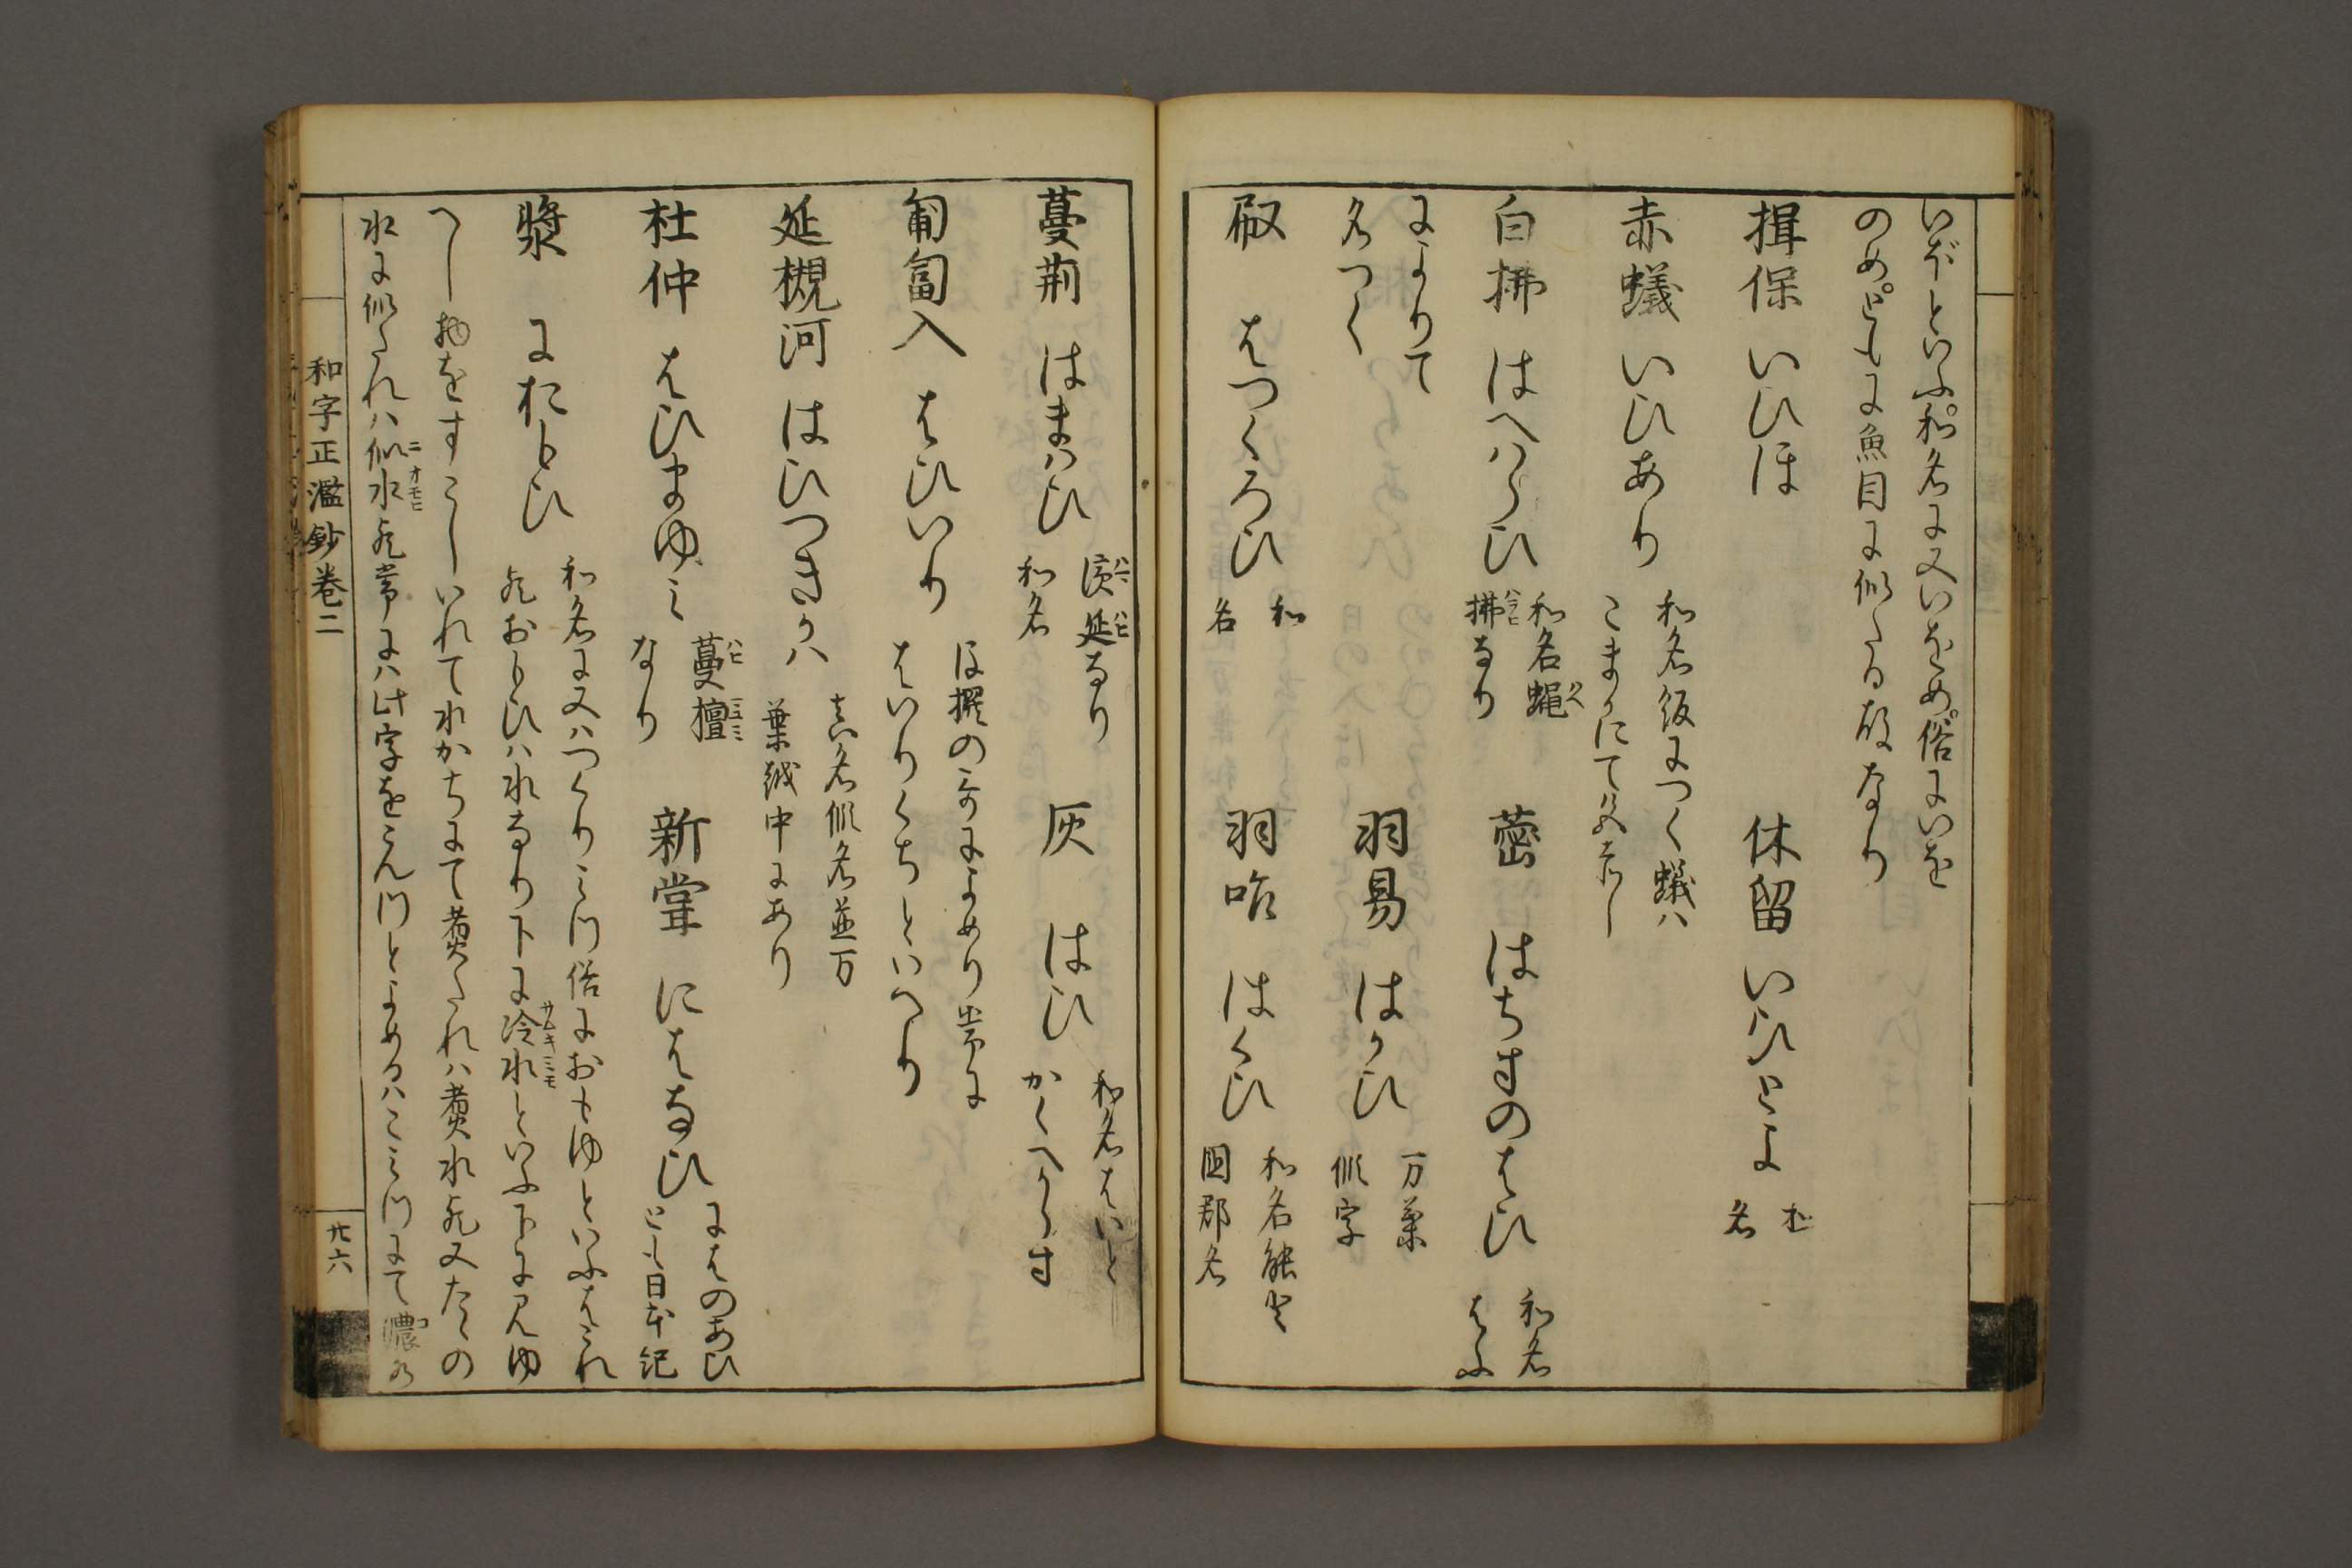 いぼといふ和名に又いをめ俗にいを
のめともに魚目に似たる故なり
揖保 いひほ
休留 いひとよ 和
名
赤蟻 いひあり 和名飯につく蟻ハ
こまかにて
白拂 はへハらひ 和名蠅
拂なり
はちすのはひ 和名
はふ
によりて
名つく
羽易 はかひ 万葉
似字
㕞 はつくろひ 和
名
羽咋 はくひ 和名能登
國郡名
蔓荊 はまハひ 濱延なり
和名
灰 はひ 和名はいと
かくへからす
匍匐入 はひいり 後撰の哥によめり常に
はいりくちといへり
延槻河 はひつきかハ 真名假名並万
葉越中にあり
杜仲 はひまゆミ 蔓檀
なり
新甞 にはなひ にはのあひ
とも日本紀
漿 におもひ 和名に又ハつくりミつ俗におもゆといふはこれ
おもひハ水なり下に冷水といふ下に見ゆ
へし物をすこしいれて水かちにて煑たれハ煑水又たゝの
水に似たれハ似水常にハ此字をこんつとよめるハこミつにて濃
和字正濫鈔卷二
廿六